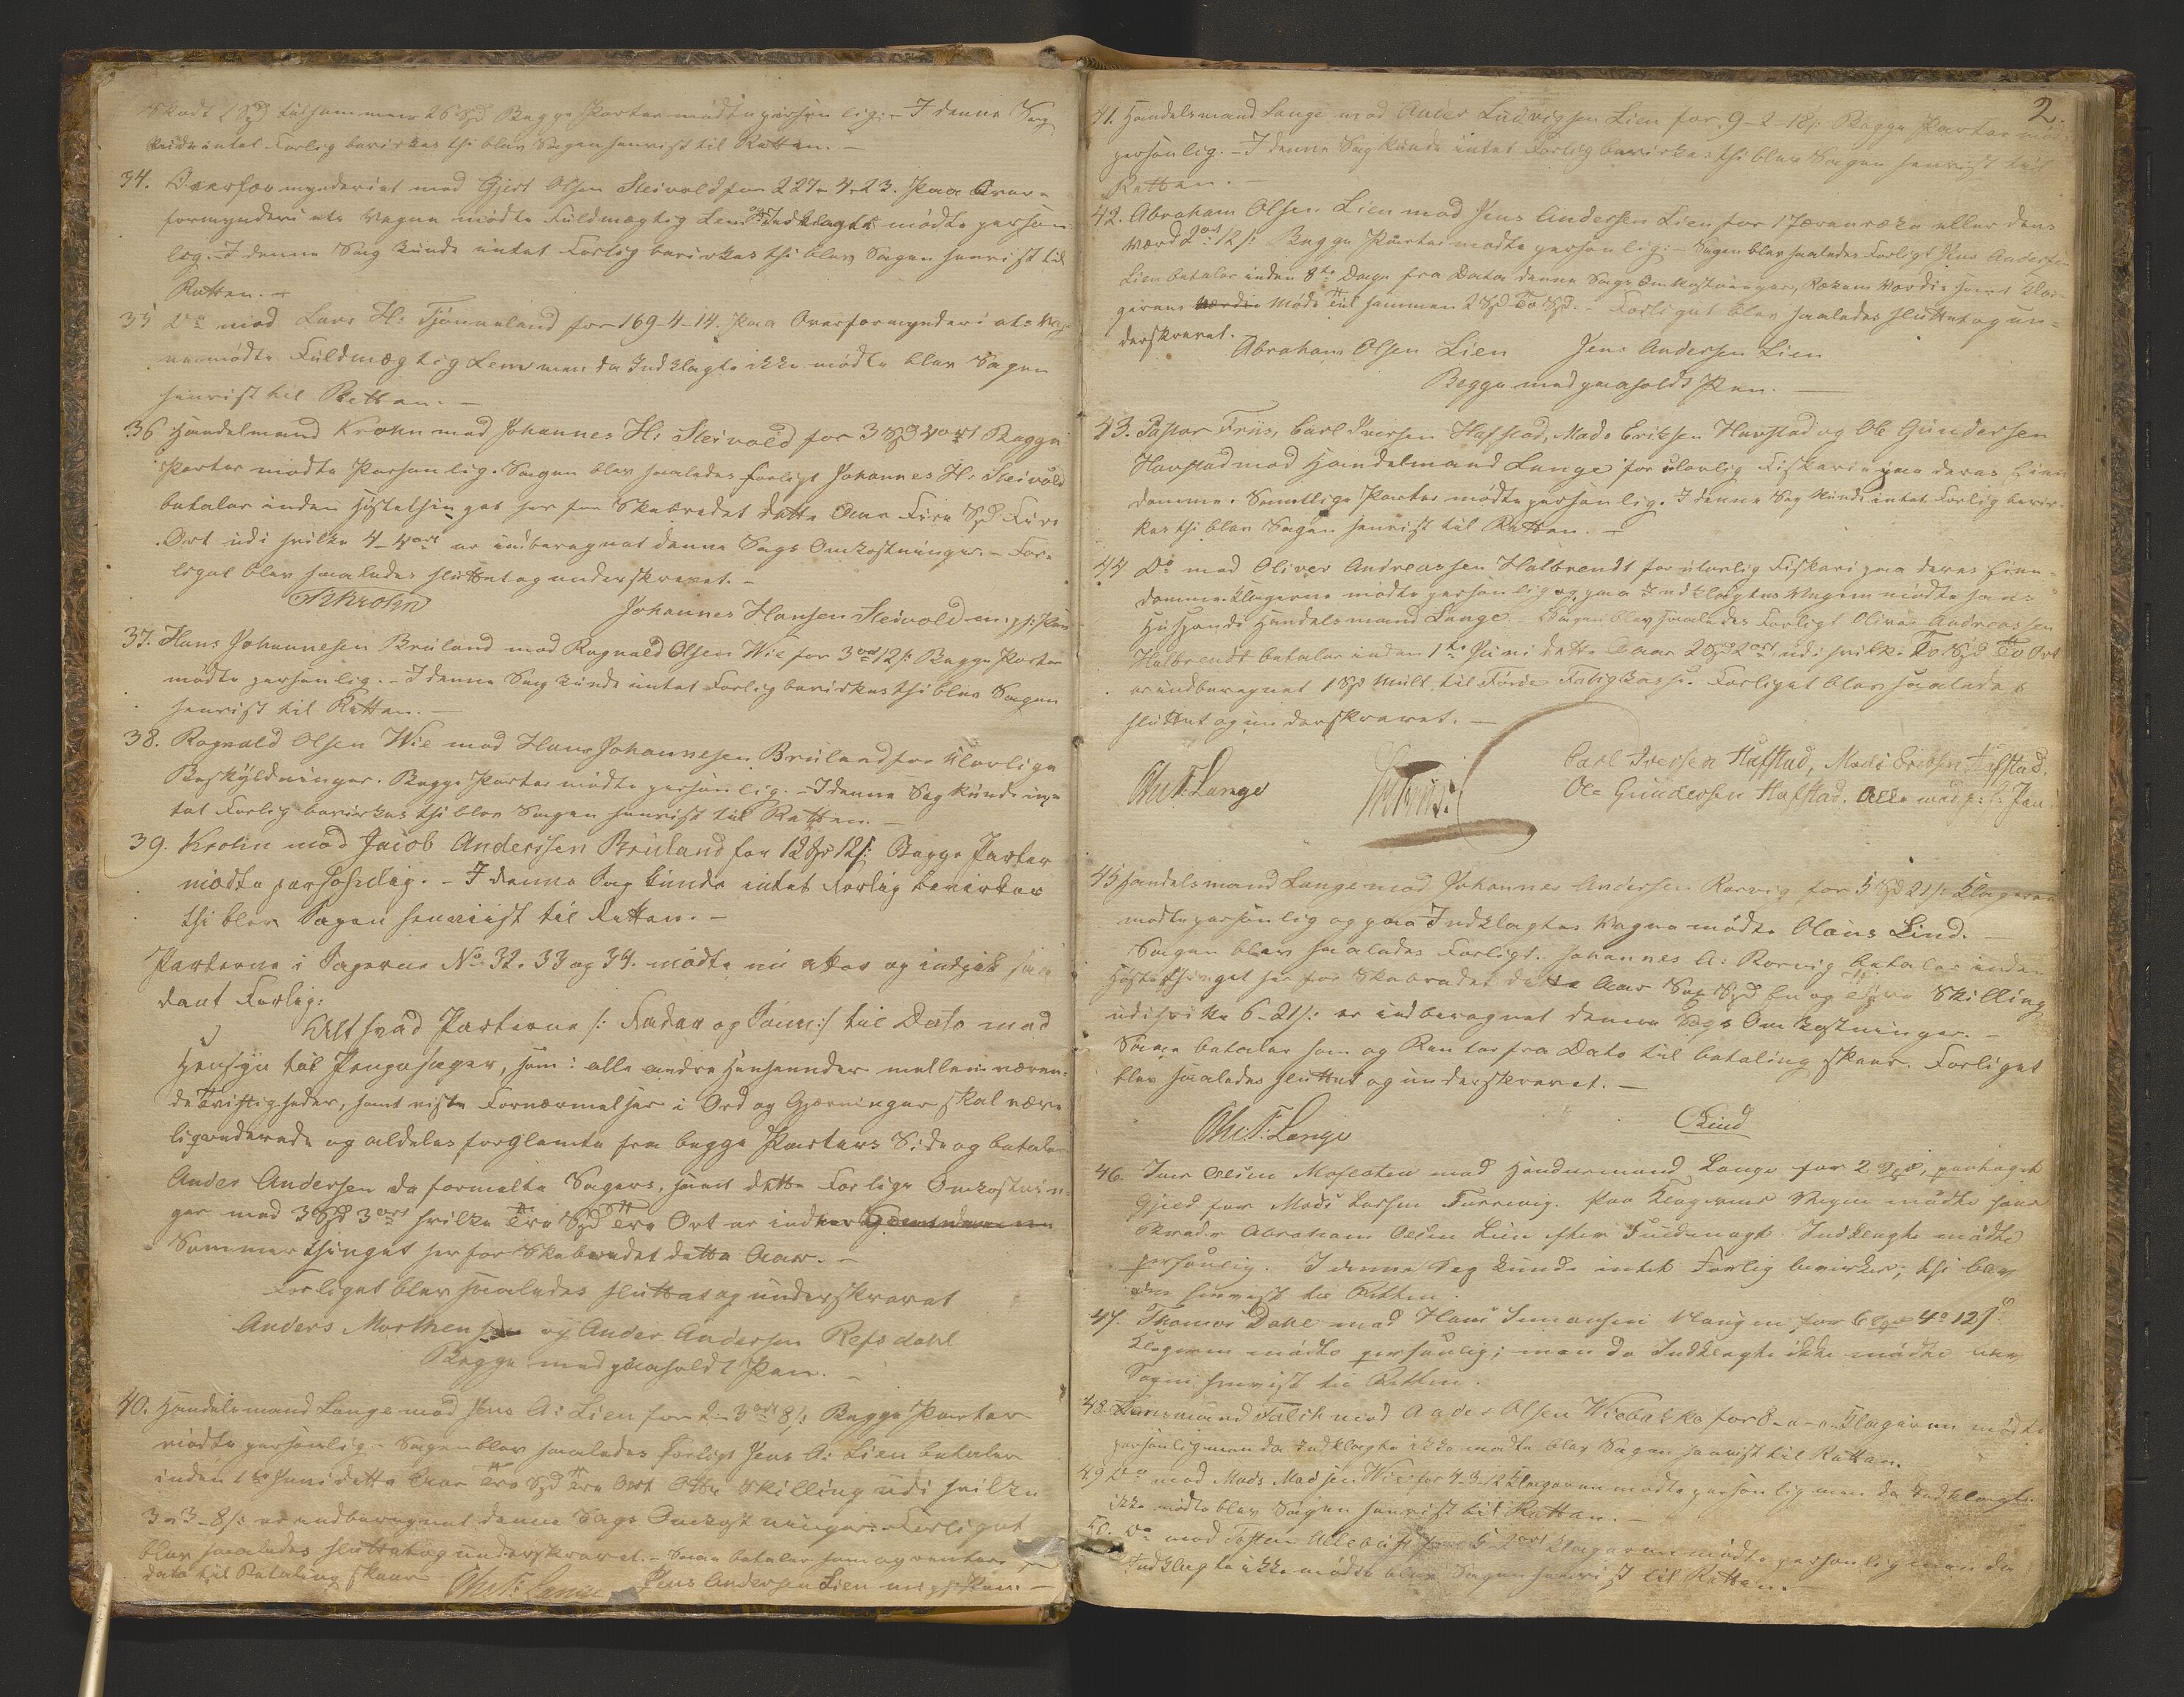 Skadt 1 Spd tilsammen 26 Spd Begge Parter mødte personlig. - I denne Sag
kunde intet Forlig bevirkes thi blev Sagen henvist til Retten. -
34. Overformynderiet mod Gjert Olsen Steivold for 227-4-23. Paa Over-
formynderiets Vegne mødte Fuldmægtig Lem og Indklagte mødte person
lig. - I denne Sag kunde intet Forlig bevirkes thi blev Sagen henvist til
Retten. -
35 Do mod Lars H: Tjønneland for 169-4-14. Paa Overformynderiets Veg
ne mødte Fuldmægtig Lem men da Indklagte ikke mødte blev Sagen
henvist til Retten. -
36 Handelmand Krohn mod Johannes H: Steivold for 3 Spd 4 ort Begge
Parter mødte Personlig. Sagen blev saaledes forligt Johannes H: Steivold
betaler inden Høstethinget her for Skibredet dette Aar Fire Spd Fire
Ort udi hvilke 4-4 ort er indberegnet denne Sags Omkostninger. - For-
liget blev saaledes sluttet og underskrevet. -
Krohn
Johannes Hansen Steivold m. p: Pen
37. Hans Johannesen Bruland mod Ragnald Olsen Wie for 3 ort 12 s: Begge Parter
mødte personlig. - I denne Sag kunde intet Forlig bevirkes thi blev Sagen
henvist til Retten. -
38. Ragnald Olsen Wie mod Hans Johannesen Bruland for Ulovlige
Beskyldninger. Begge Parter mødte personlig. - I denne Sag kunde in-
tet Forlig bevirkes thi blev Sagen henvist til Retten. -
39. Krohn mod Jacob Anderssen Bruland for 12 Spd 12 s: Begge Parter
mødte personlig. - I denne Sag kunde intet Forlig bevirkes
thi blev Sagen henviist til Retten. -
Parterne i Sagerne No 32. 33 og 34. mødte nu atter og indgik saa
dant Forlig:
Alt hvad Parterne /: Fader og Søn :/ til Dato med
Hensyn til Pengesager, som i alle andre Henseender mellem væren-
de Tvistigheder, samt viste Fornærmelser i Ord og Gjerninger skal være
liqviderede og aldeles forglemte fra begge Parters Side og betaler
Ander Andersen da formelte Sagers, samt dette Forligs Omkostnin-
ger med 3 Spd 3 ort hvilke Tre Spd Tre Ort er
Sommerthinget her for Skibredet dette Aar. -
Forliget blev saaledes sluttet og underskrevet
Anders Morthensen og Ander Andersen Refsdahl
Begge med paaholdt Pen. -
40. Handelsmand Lange mod Jens A: Lien for 2-3 ort 8 s: Begge Parter
mødte personlig. - Sagen blev saaledes forligt Jens A: Lien betaler
inden 1te Juni dette Aar Tre Spd Tre Ort Otte Skilling udi hvilke
3-3-8 s: er indberegnet denne Sags Omkostninger. - Forliget
blev saaledes sluttet og underskrevet. - Saan betaler som og renter fra
dato til Betaling skeer
Chr. F. Lange Jens Andersen Lien m. p: Pen. -
2.
41. Handelsmand Lange mod Ander Ludvigsen Lien for 9-2-18 s: Begge Parter mødte
personlig. - I denne Sag kunde intet Forlig bevirkes thi blev Sagen henvist til
Retten. -
42. Abraham Olsen Lien mod Jens Anderssen Lien for 1 eller dens
Værd 2 ort 12 s: Begge Parter mødte personlig. - Sagen blev saaledes Forligt Jens Andersen
Lien betaler inden 8te Dage fra Dato denne Sags Omkostninger, Værdie samt Kla-
gerens Møde tilsammen 2 Spd To Spd. - Forliget blev saaledes sluttet og un-
derskrevet.
Abraham Olsen Lien Jens Andersen Lien
Begge med paaholdt Pen. -
43. Pastor Friis, Carl Iversen Hafstad, Mads Eriksen Havstad og Ole Gundersen
Havstad mod Handelmand Lange for ulovlig Fiskeri paa deres Eien
domme. Samtlige Parter mødte personlig. I denne Sag kunde intet Forlig bevir-
kes thi blev Sagen henvist til Retten. -
44 Do mod Oliver Andreassen Halbrendt for ulovlig Fiskeri paa deres Eien-
domme. Klagerne mødte personlig og paa Indklagtes Vegne mødte hans
Husbond Handelsmand Lange. - Sagen blev saaledes Forligt Oliver Andreassen
Halbrendt betaler inden 1te Juni dette Aar 2 Spd 2 ort, udi hvilke To Spd To Ort
er indberegnet 1 Spd Mult til Førde Fatigkasse. Forliget blev saaledes
sluttet og underskrevet. -
Chr. F. Lange
Friis.
Carl Iversen Hafstad, Mads Eriksen Hafstad.
Ole Gundersen Hafstad. Alle med p: h: Pen
45 Handelsmand Lange mod Johannes Andersen Rørvig for 5 Spd 21 s: Klageren
mødte personlig og paa Indklagtes Vegne mødte Olaus Lind.
Sagen blev saaledes Forligt. Johannes A: Rørvig betaler inden
Høstethinget her for Skibredet dette Aar Sex Spd En og Tyve Skilling
udi hvilke 6-21 s: er indberegnet denne Sags Omkostninger. -
Saan betaler som og Renter fra Dato til betaling skeer. Forliget
blev saaledes sluttet og underskrevet. -
Chr. F. Lange
OLind
46. Iver Olsen Mofloten mod Handelsmand Lange for 2 Spd, paataget
Gjæld for Mads Larsen Furrevig. Paa Klagerens Vegne mødte
Abraham Olsen Lien efter Fuldmagt. Indklagte mødte
personlig. I denne Sag kunde intet Forlig bevirkes; thi blev
den henvist til Retten.
47. Thomas Dahl mod Hans Simonsen Haugen for 6 Spd 4 o 12 s.
Klageren mødte personlig; men da Indklagte ikke mødte blev
Sagen henvist til Retten.
48. Lensmand Falch mod Ander Olsen Viebakke for 8-0-0. Klageren mødte
personlig men da Indklagte ikke mødte blev Sagen henvist til Retten.
49 Do mod Mads Madsen Wie for 4-3-12 Klageren mødte personlig men da Indklagte
ikke mødte blev Sagen henvist til Retten. -
50. Do mod Tosten for 5-2 ort Klageren mødte personlig men da
Indklagte ikke mødte blev Sagen henvist til Retten. -